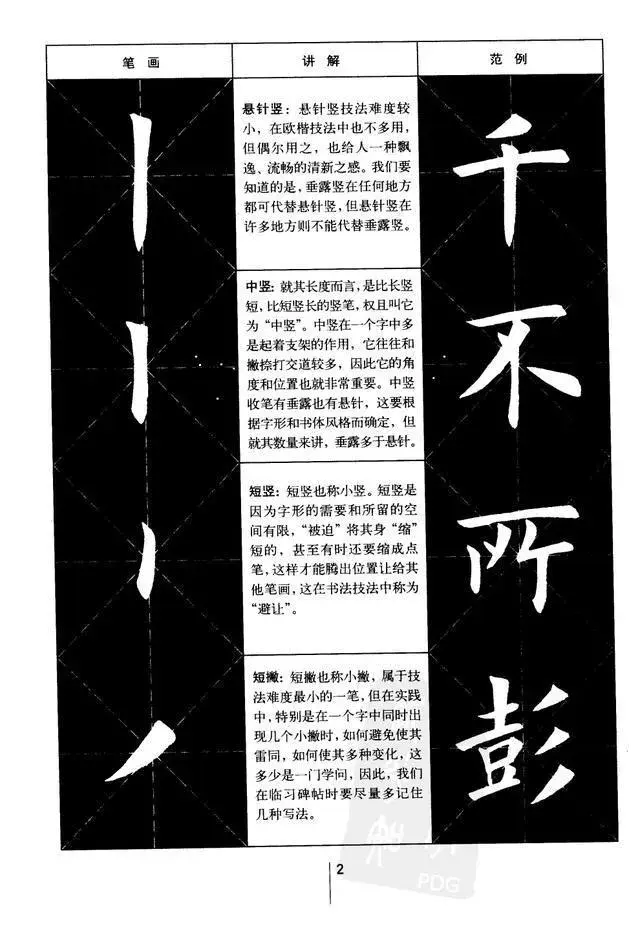 笔画
讲解
范例
悬针竖：悬针竖技法难度较
小，在欧楷技法中也不多用，
但偶尔用之，也给人一种飘
逸、流畅的清新之感。我们要
知道的是，垂露竖在任何地方
都可代替悬针竖，但悬针竖在
许多地方则不能代替垂露竖。
千
中竖：就其长度而言，是比长竖
短，比短竖长的竖笔，权且叫它
为“中竖”。中竖在一个字中多
是起着支架的作用，它往往和
撇捺打交道较多，因此它的角
度和位置也就非常重要。中竖
收笔有垂露也有悬针，这要根
据字形和书体风格而确定，但
就其数量来讲，垂露多于悬针。
不
短竖：短竖也称小竖。短竖是
因为字形的需要和所留的空
间有限，“被迫”将其身“缩”
短的，甚至有时还要缩成点
笔，这样才能腾出位置让给其
他笔画，这在书法技法中称为
“避让”。
所
短撇：短撇也称小撇，属于技
法难度最小的一笔，但在实践
中，特别是在一个字中同时出
现几个小撇时，如何避免使其
雷同，如何使其多种变化，这
多少是一门学问，因此，我们
在临习碑帖时要尽量多记住
几种写法。
彭
2
PDG